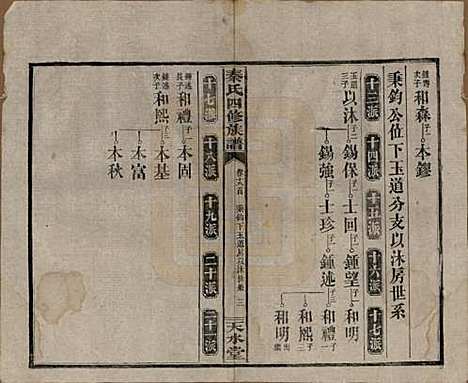 鍾秀次子 和森 本鏐
秉鈞公位下玉道分支以沐房世系
十三派 十四派 十五派 十六派 十七派
玉道三子 以沐 子二 錫保 子一 士回 子一 鍾望 子一 和明
錫強 子一 士珍 子一 鍾述 子三 和禮 子一
和熙 子三
和明 出繼
秦氏四修族譜
天水堂
十七派 十八派 十九派 二十派 二十一派
鍾述長子 和禮 子一 本固
鍾述次子 和熙 子三 本基
本富
本秋